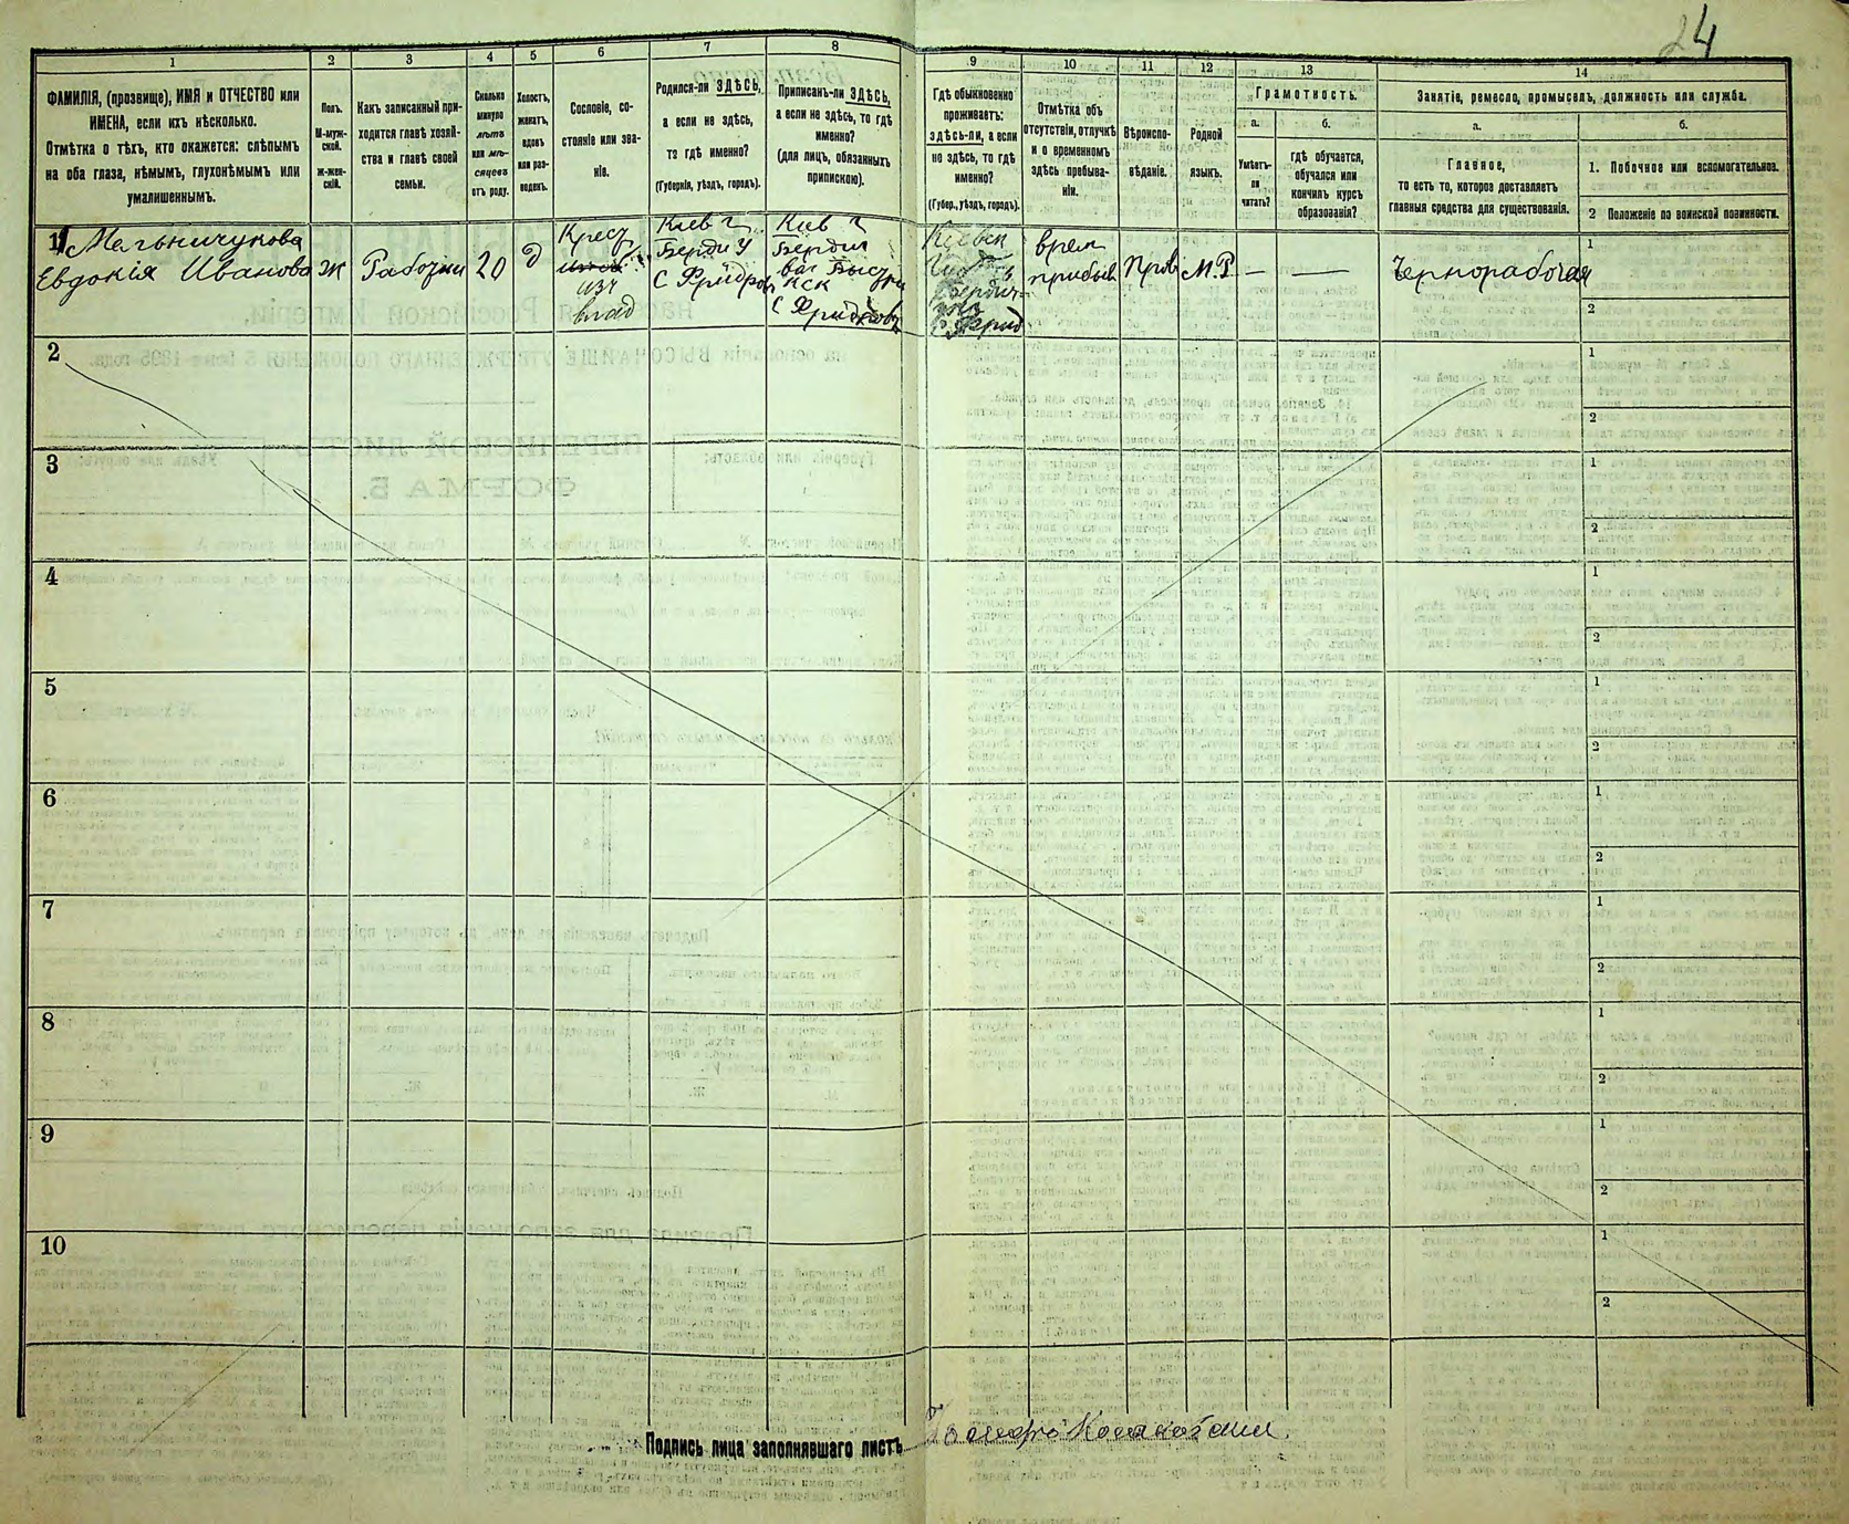 24
1
2
3
4
5
6
7
8
9
10
11
12
13
14
ФАМИЛІЯ, (прозвище), ИМЯ и ОТЧЕСТВО или
ИМЕНА, если ихъ нѣсколько.
Отмѣтка о тѣхъ, кто окажется: слѣпымъ
на оба глаза, нѣмымъ, глухонѣмымъ или
умалишеннымъ.
Полъ.
М-муж-
ской.
ж-жен-
скій.
Какъ записанный при-
ходится главѣ хозяй-
ства и главѣ своей
семьи.
Сколько
минуло
лѣтъ
или мѣ-
сяцевъ
отъ роду.
Холостъ,
женатъ,
вдовъ
или раз-
веденъ.
Сословіе, со-
стояніе или зва-
ніе.
Родился-ли ЗДѢСЬ,
а если не здѣсь,
то гдѣ именно?
(Губернія, уѣздъ, городъ).
Приписанъ-ли ЗДѢСЬ,
а если не здѣсь, то гдѣ
именно?
(для лицъ, обязанныхъ
припискою).
Гдѣ обыкновенно
проживаетъ:
здѣсь-ли, а если
не здѣсь, то гдѣ
именно?
(Губер., уѣздъ, городъ).
Отмѣтка объ
отсутствіи, отлучкѣ
и о временномъ
здѣсь пребыва-
ніи.
Вѣроиспо-
вѣданіе.
Родной
языкъ.
Грамотность.
а.
Умѣетъ-
ли
читать?
б.
гдѣ обучается,
обучался или
кончилъ курсъ
образованія?
Занятіе, ремесло, промыселъ, должность или служба.
а.
Главное,
то есть то, которое доставляетъ
главныя средства для существованія.
б.
1. Побочное или вспомогательное.
2 Положеніе по воинской повинности.
1 Мельничукова
Евдокія Иванова
ж
20
д
Крест
влад
Кіев г
Берди У
Кіев г
Бердич
врем
прибыв
Прав
М.Р.
—
—
Чернорабочая
1
2
2
1
2
3
1
2
4
1
2
5
1
2
6
1
2
7
1
2
8
1
2
9
1
2
10
1
2
Подпись лица заполнявшаго листъ